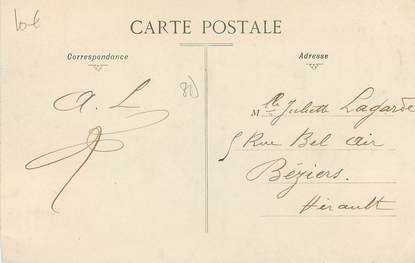 10€
CARTE POSTALE
Correspondance
Adresse
A. L
80
Mlle Juliette Lagarde
5 Rue Bel air
Béziers.
Hérault